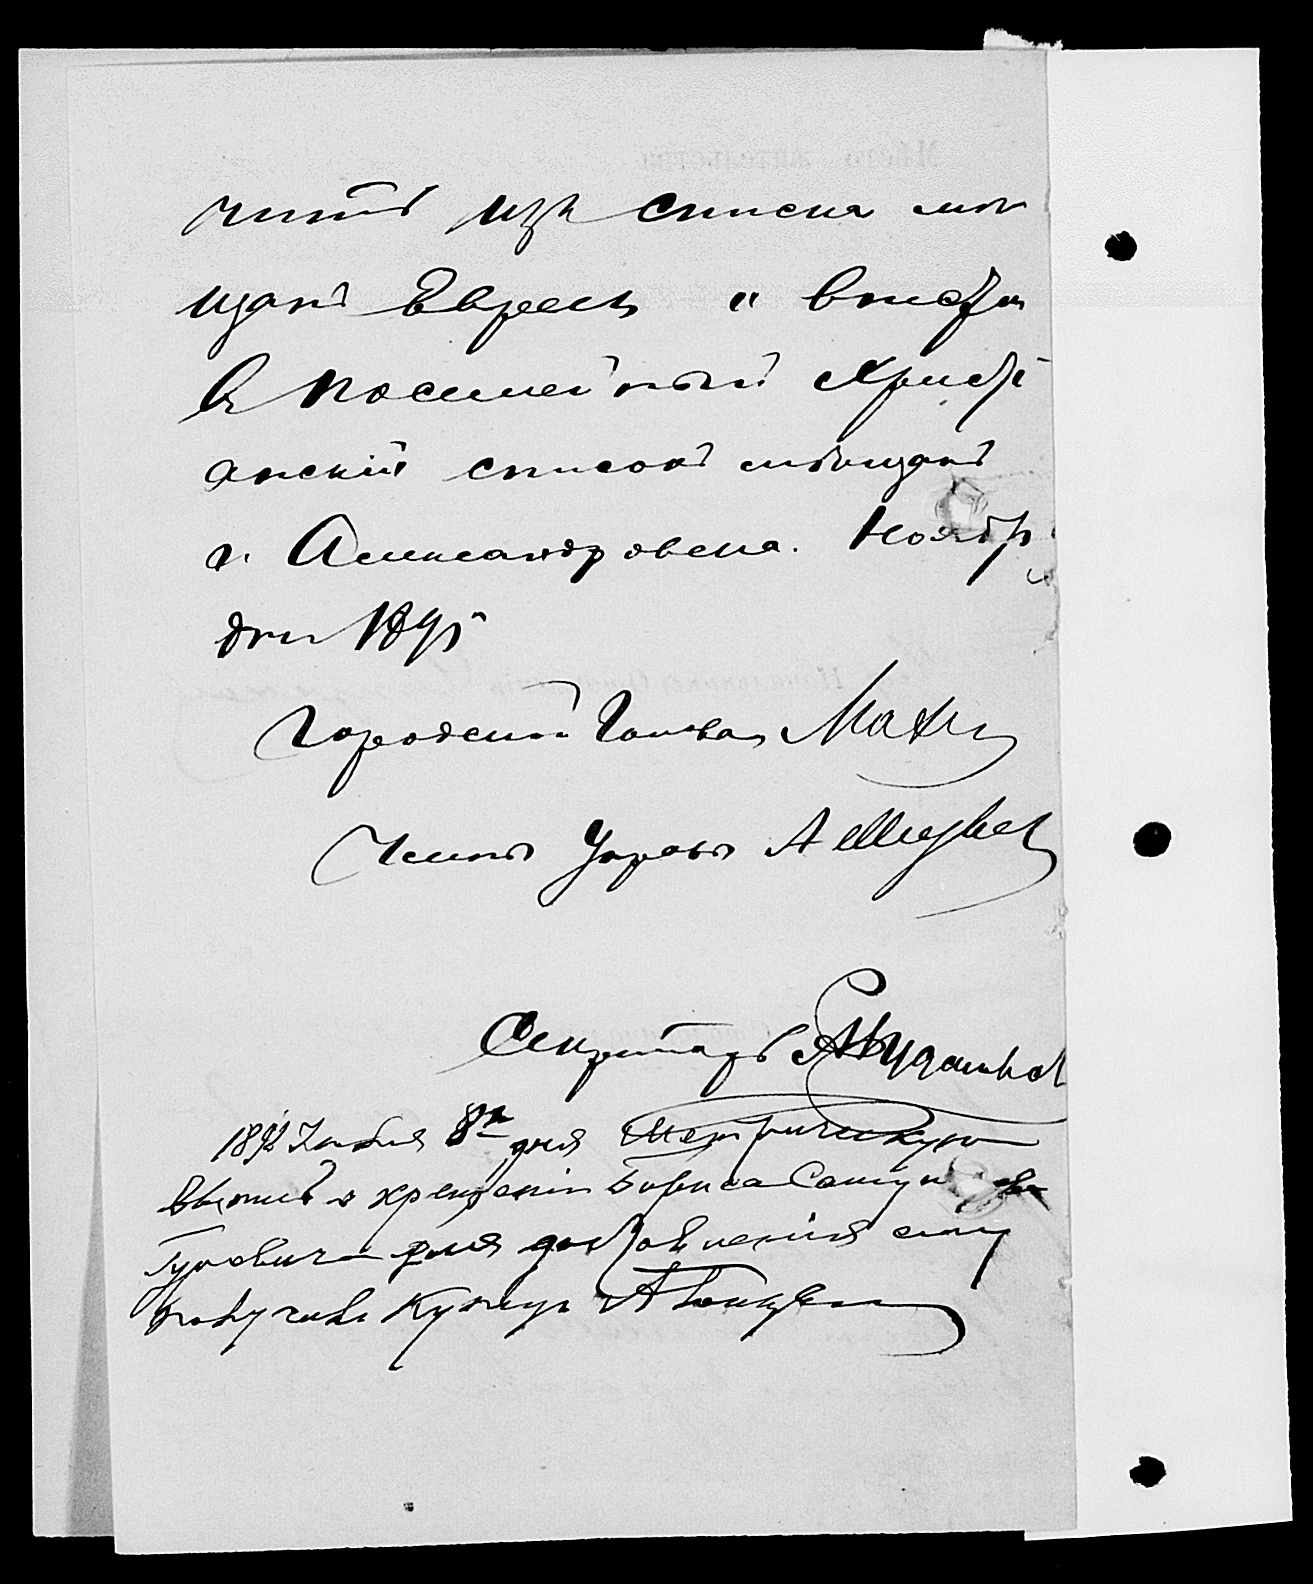 чить изъ списка мѣ
щанъ Евреевъ и внести
въ посемейный христі
анскій списокъ мѣщанъ
г. Александровска. Ноябр
дня 1895
Городской Голова Махн
Членъ Управы А Медвед
Секретарь
189 Ноября 8го дня Метрическую
выпись о крещеніи Бориса Самуи
Гуревича для доставленія ему
получилъ Купецъ А